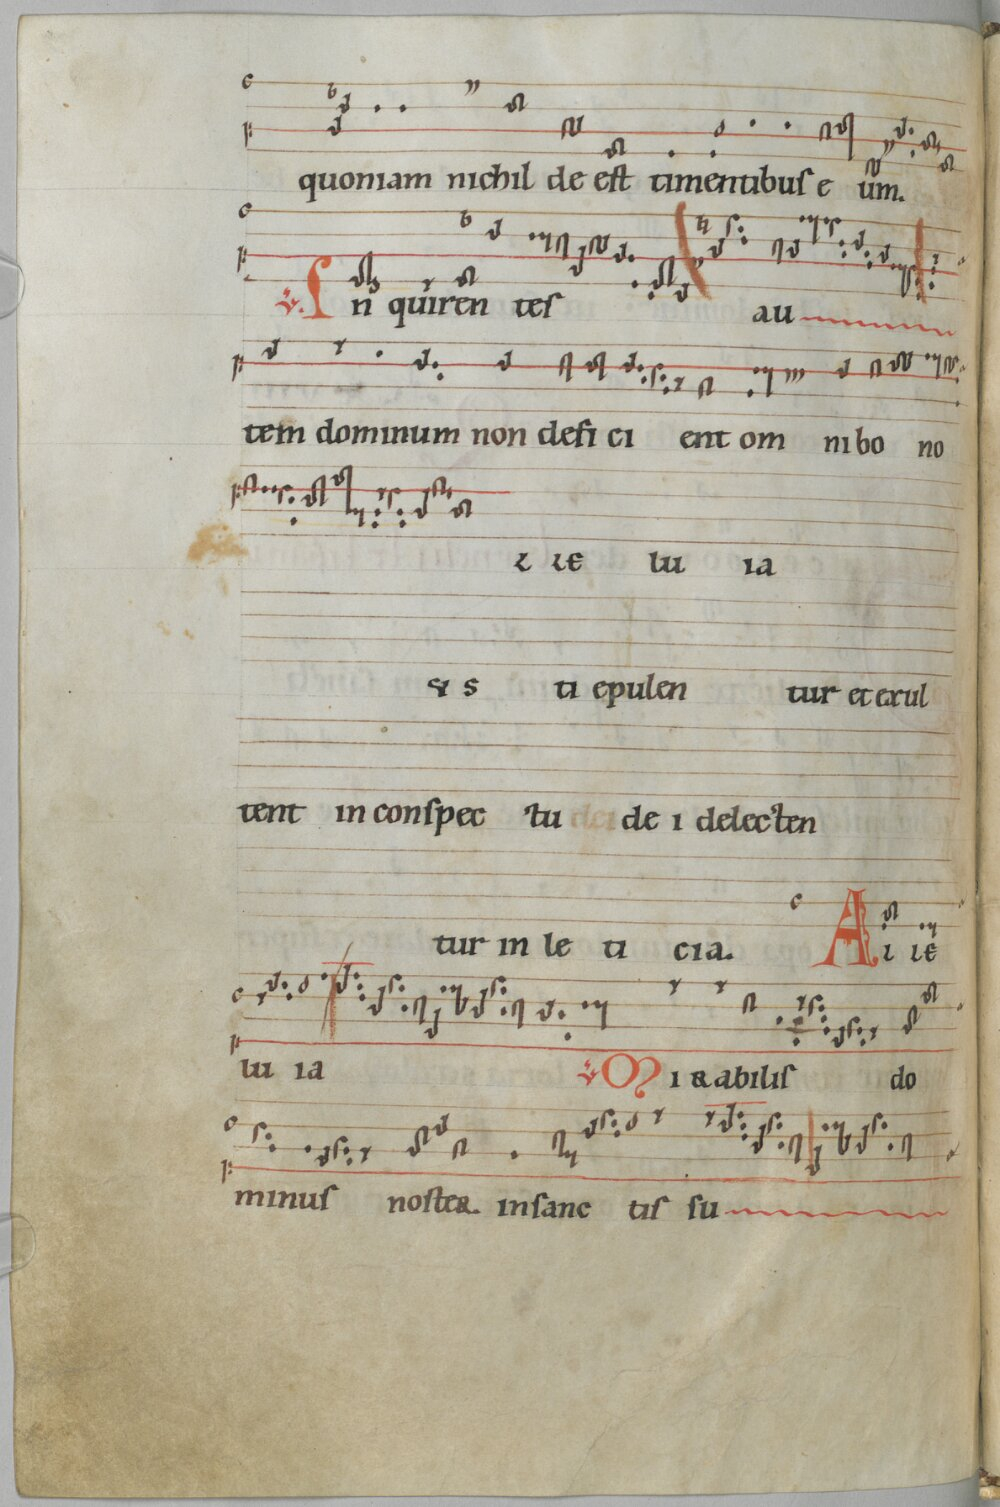 quoniam nichil de eſt timentibuſ e um.
℣. In quiren teſ au
tem dominum non defi ci ent om ni bo no
l le lu ia
& s ti epulen tur et exul
tent in conſpec tu dei de i delecten
tur in le ti cia. A l le
lu ia ℣ Mirabiliſ do
minuſ noſter. inſanc tiſ ſu